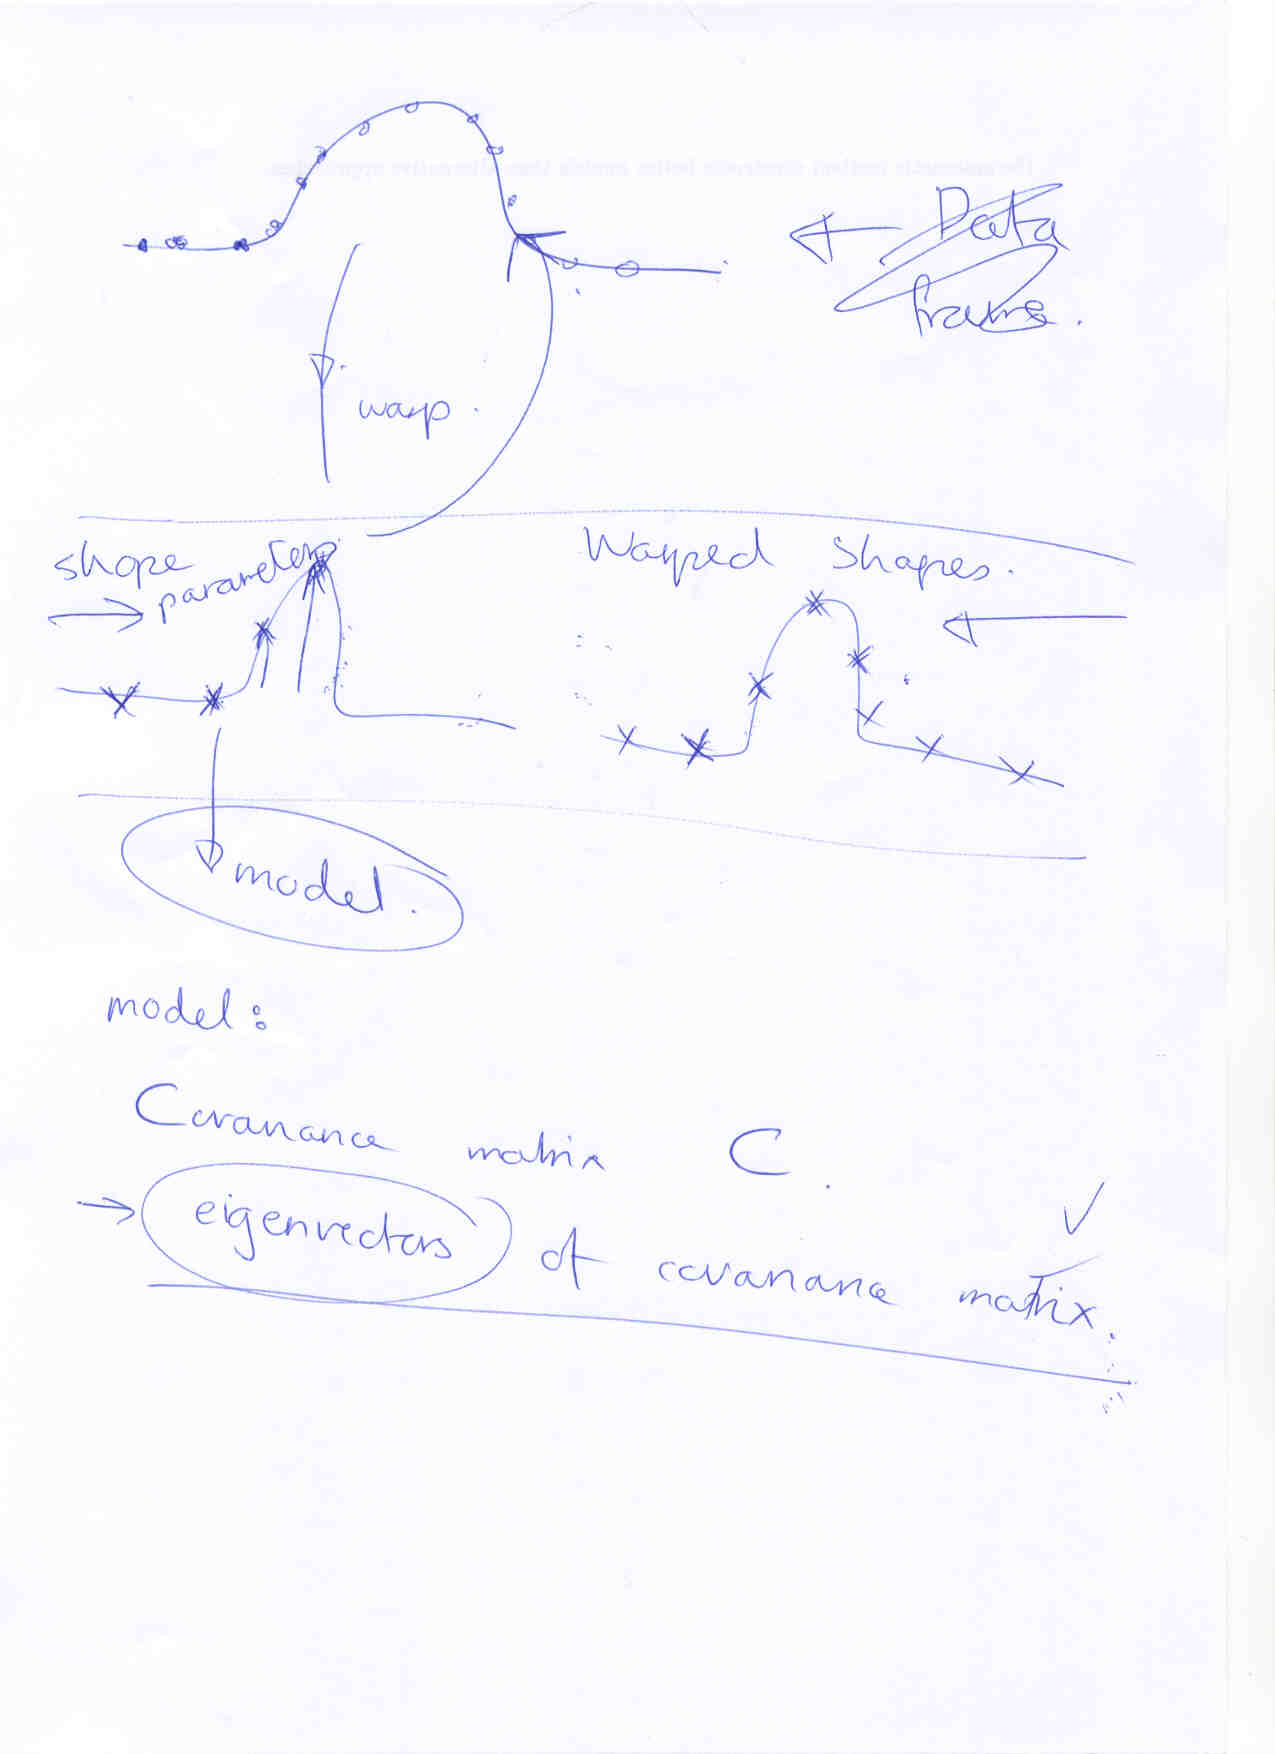 Data
frame.
warp.
shape
parameters
Warped Shapes.
model.
model:
Covariance matrix C.
eigenvectors of covariance matrix.